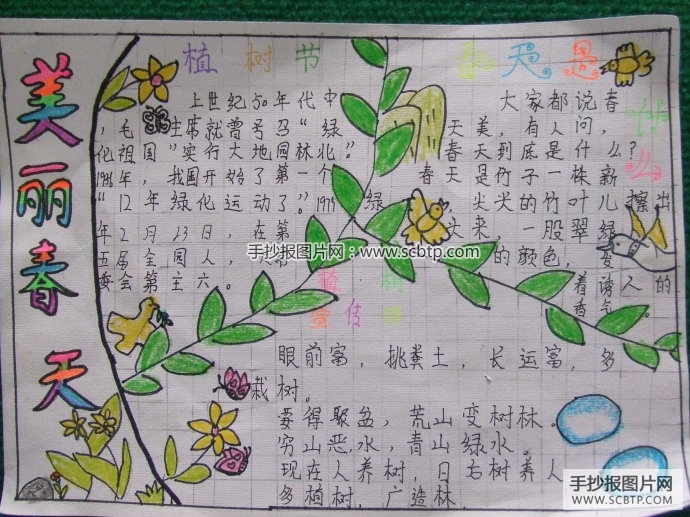 美丽春天
植树节
上世纪50年代中
，毛主席就曾号召“绿
化祖国”实行大地同林北”。
1981年，我国开始了第一个
“12年绿化运动了”。1979
年2月23日，在第
五届全同人，常
委会第主六。
春天是什么
大家都说春
天美，有人问，
春天到底是什么？
春天是竹子一株新
绿，尖尖的竹叶儿擦出
头来，一股翠绿
的颜色，变
着诱人的
香气。
植树
宣传
眼前富，挑粪土，长运富，多
栽树。
要得聚盆，荒山变树林。
穷山恶水，青山绿水。
现在人养树，日右树养人
多植树，广造林
手抄报图片网：www.scbtp.com
手抄报图片网
www.scbtp.com